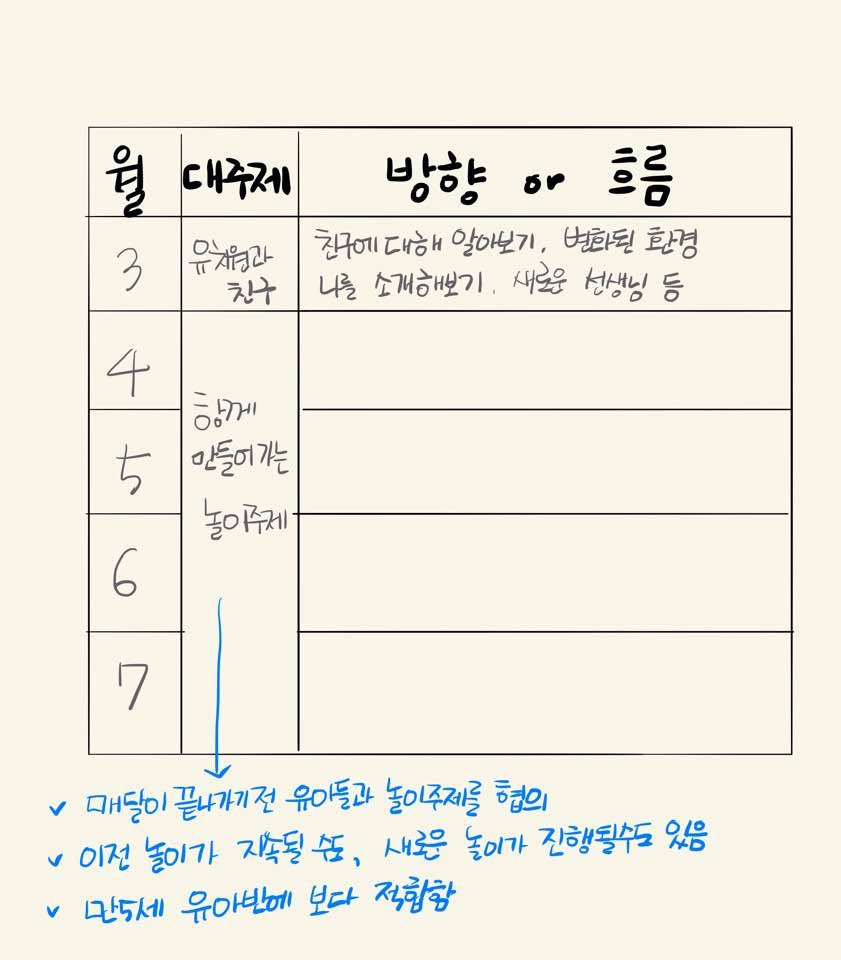 월 대주제 방향 or 흐름
3 유치원과 친구에 대해 알아보기, 변화된 환경
친구 나를 소개해보기, 새로운 선생님 등
4
함께
5 만들어가는
놀이주제
6
7
✓ 매달이 끝나가기전 유아들과 놀이주제를 협의
✓ 이전 놀이가 지속될 수도, 새로운 놀이가 진행될수도 있음
✓ 만5세 유아반에 보다 적합함